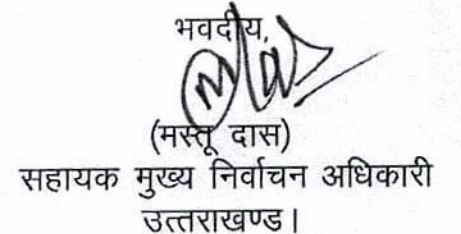 भवदीय,
(मस्तू दास)
सहायक मुख्य निर्वाचन अधिकारी
उत्तराखण्ड।